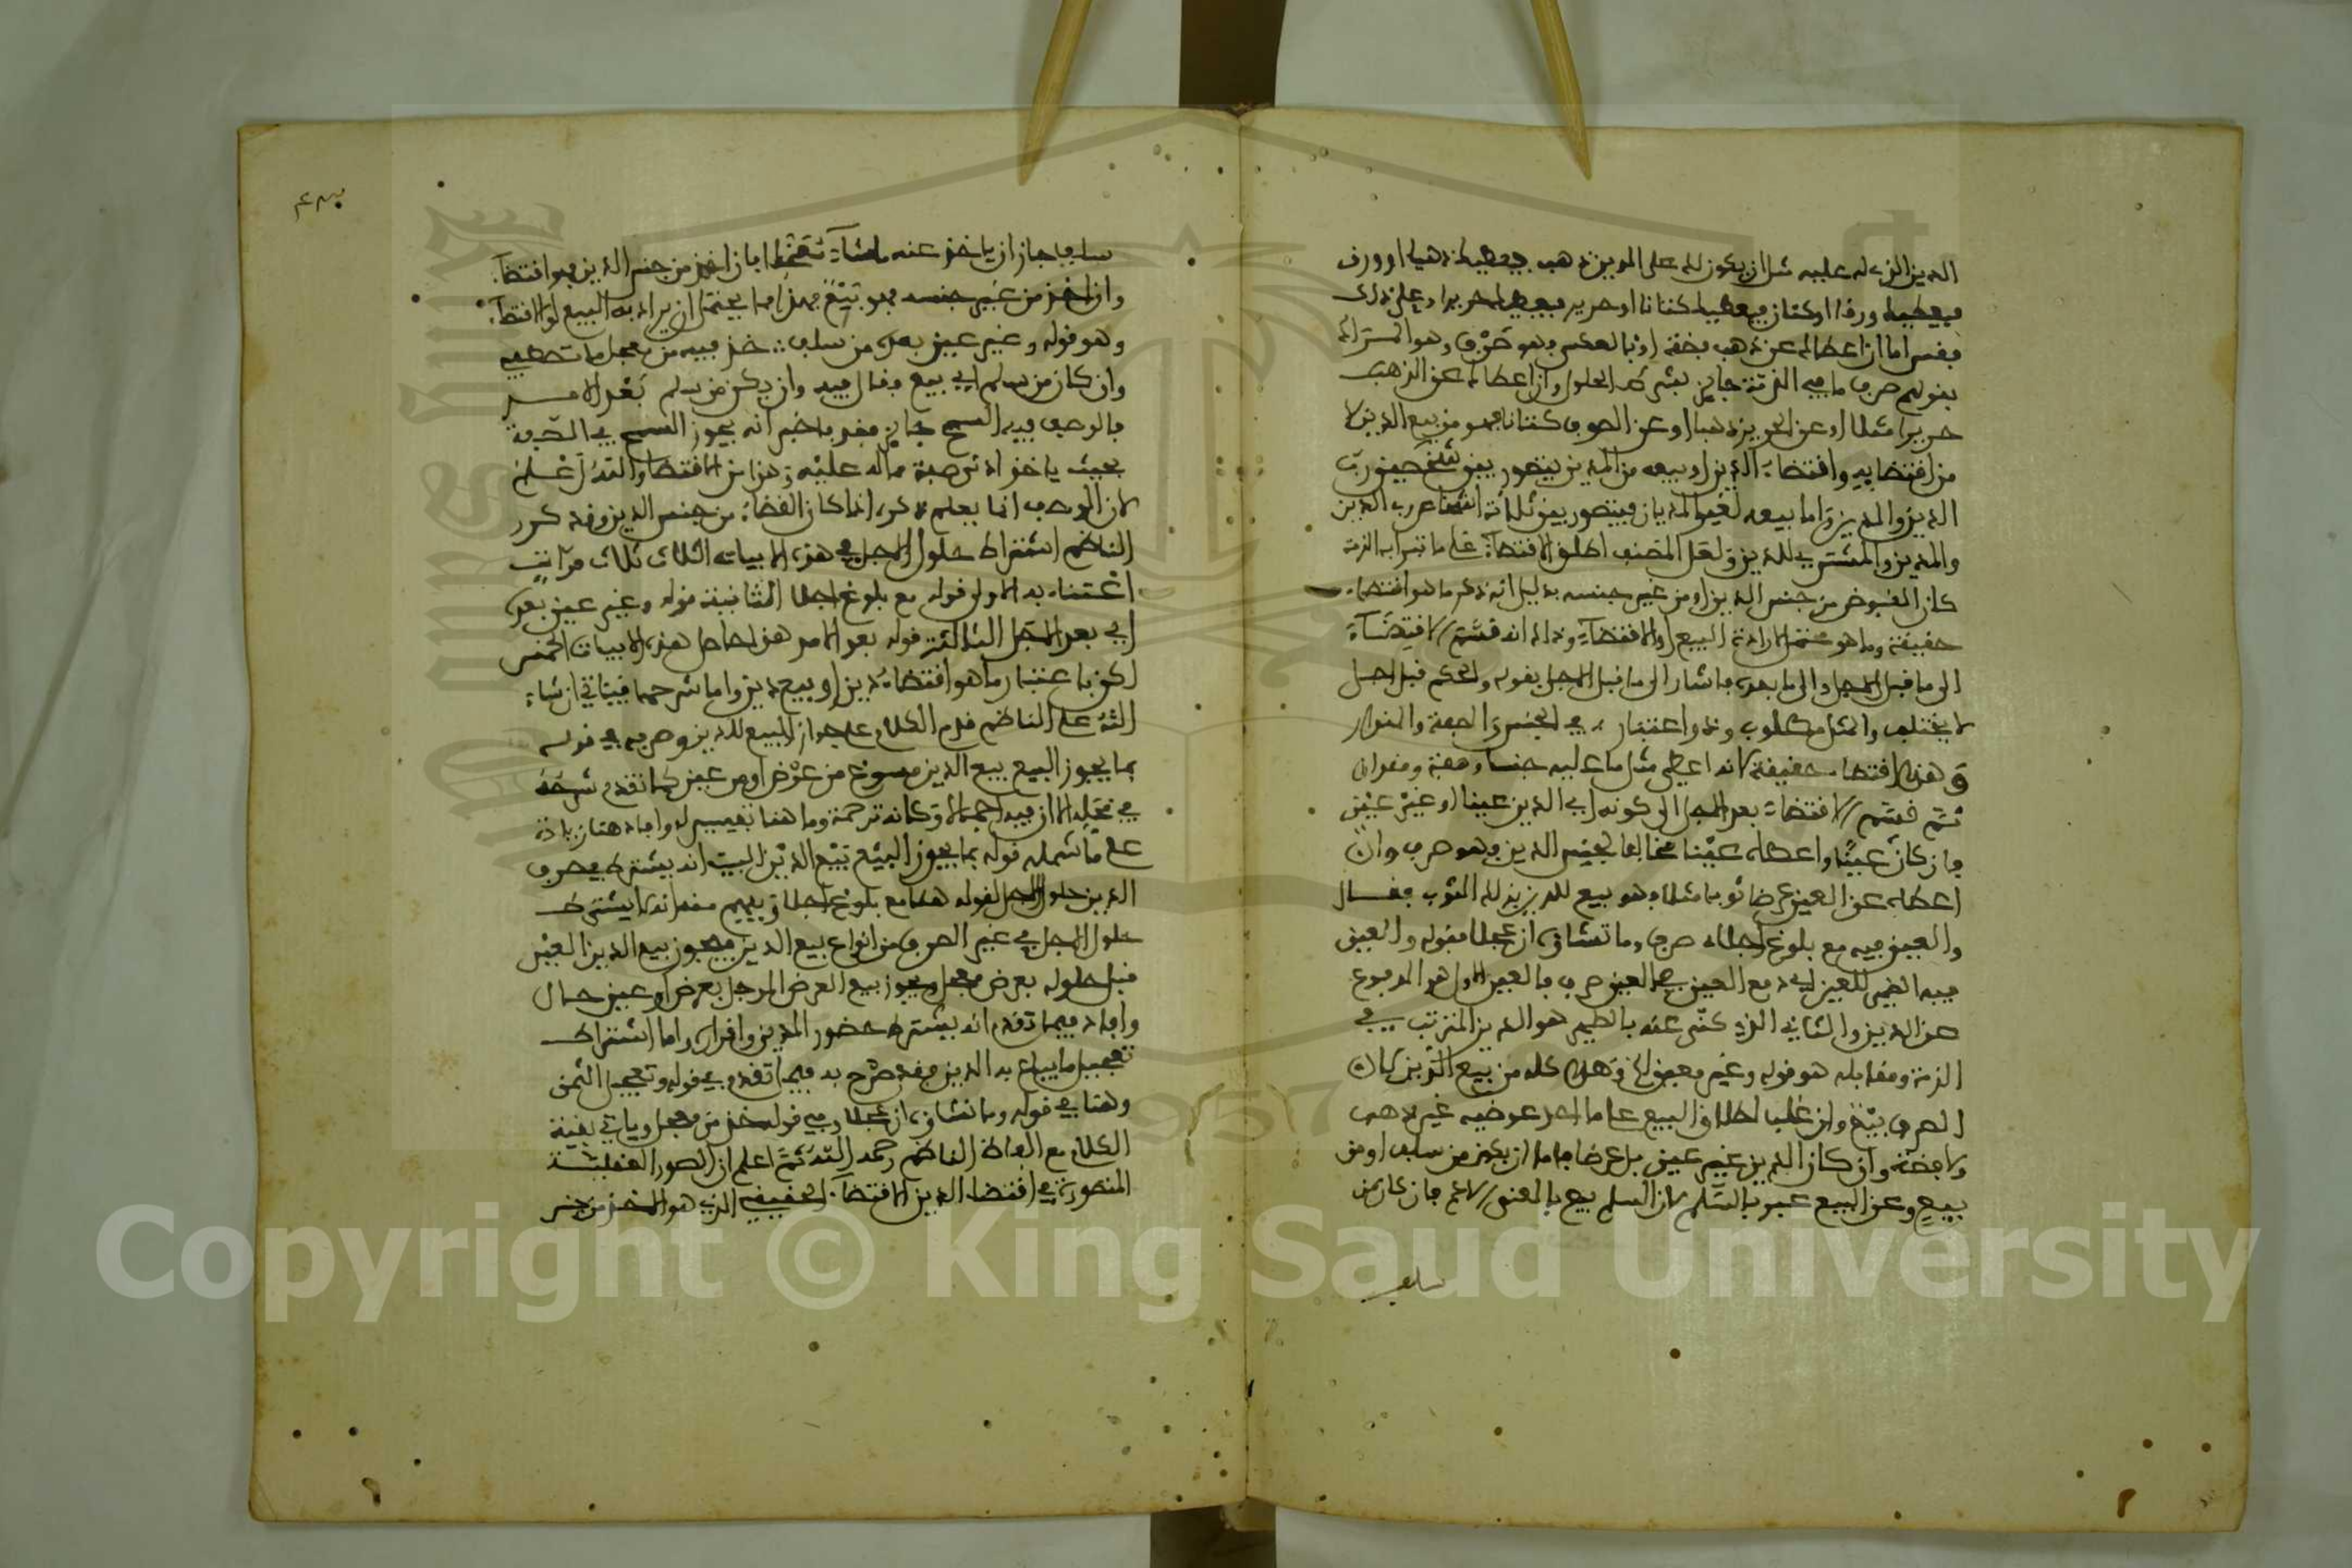 الدين الذي له عليه مثل ان يكون لك على المدين ذهب فيعطيك ذهبا او ورق
فيعطيك ورقا او كتان فيعطيك كتانا او حرير فيعطيك حريرا وعلى ذلك
فقس اما ان اعطاك عن ذهب فضة او بالعكس فهو صرف وهو المسمى
بقولهم صرف ما في الذمة جايز بشرط الحلول وان اعطاك عن الذهب
حريرا مثلا او عن الحرير ذهبا او عن الصوف كتانا فهو من بيع الدين لا
من اقتضايه واقتضاء الدين او بيعه من المدين يتصور بين شخصين رب
الدين والمدين واما بيعه لغير المديان فيتصور بين ثلاثة اشخاص رب الدين
والمدين والمشتري للدين ولعل المصنف اطلق الاقتضاء على ما تبرا به الذمة
كان المقبوض من جنس الدين او من غير جنسه بدليل انه ذكر ما هو اقتضاء
حقيقة وما هو محتمل لارادة البيع او الاقتضاء وذلك انه قسم الاقتضاء
الى ما قبل الاجل والى ما بعده فاشار الى ما قبل الاجل بقوله والحكم قبل اجل
لا يختلف والمثل مطلوب وذو اعتبار في الجنس والصفة والمقدار
وهذا اقتضاء حقيقة لانه اعطى مثل ما عليه جنسا وصفة ومقدارا
ثم قسم الاقتضاء بعد الاجل الى كونه اي الدين عينا او غير عين
فان كان عينا واعطاه عينا مخالفا لجنس الدين فهو صرف وان
اعطاه عن العين عرضا ثوبا مثلا فهو بيع للدين بذلك الثوب فقال
والعين فيه مع بلوغ اجلا صرف وما تشاؤه ان عجلا فقوله والعين
فيه الضمير للعين اي دفع العين في العين صرف فالعين الاول هو المدفوع
عن الدين والثاني الذي كنى عنه بالضمير هو الدين المترتب في
الذمة ومقابله هو قوله وغير معين الخ وهذا كله من بيع الدين لان
الصرف بيع وان غلب اطلاق البيع على ما احد عوضيه غير ذهب
ولا فضة وان كان الدين غير عين بل عرضا فاما ان يكون من سلف او من
بيع وعن البيع عبر بالسلم لان السلم بيع بالمعنى الاعم فان كان من
سلف
سلف جاز ان ياخذ عنه ما شاء معجلا فان اخذ من جنس الدين فهو اقتضاء
وان اخذ من غير جنسه فهو بيع فهذا مما يحتمل ان يراد به البيع او الاقتضاء
وهو قوله وغير عين بعده من سلف خذ فيه من معجل ما تصطفي
وان كان من سلم اي بيع فقال فيه وان يكن من سلم بعد الامد
فالوصف فيه السمح جايز فقد فاخبر انه يجوز السمح في الصفة
بحيث ياخذ ادنى صفة مما له عليه وهذا من الاقتضاء والله اعلم
لان الوصف انما يعلم ذكره اذا كان القضاء من جنس الدين وقد كرر
الناظم اشتراط حلول الاجل في هذه الابيات الثلاث ثلاث مرات
اعتناء به الاولى قوله مع بلوغ اجلا الثانية قوله وغير عين بعده
اي بعد الاجل الثالثة قوله بعد الامد هذا حاصل هذه الابيات الخمس
لكن باعتبار ما هو اقتضاء دين او بيع دين واما شرحها فياتي ان شاء
الله على الناظم قدم الكلام على جواز البيع للدين وصرفه في قوله
بما يجوز البيع بيع الدين مسوغ من عرض او من عين كما تقدم شرحه
في محله الا ان فيه اجمالا وكانه ترجمة وما هنا تفسير له وافاد هنا زيادة
على ما شمله قوله بما يجوز البيع بيع الدين البيت انه يشترط في صرف
الدين حلول الاجل لقوله هنا مع بلوغ اجلا ويفهم منه انه لا يشترط
حلول الاجل في غير الصرف من انواع بيع الدين فيجوز بيع الدين العين
قبل حلوله بعرض معجل ويجوز بيع العرض المؤجل بعرض او عين حال
وافاد فيما تقدم انه يشترط حضور المدين واقراره واما اشتراط
تعجيل ما يباع به الدين فقد صرح به فيما تقدم في قوله وتعجيل الثمن
وهنا في قوله وما تشاؤه ان عجلا وفي قوله خذ من معجل وياتي بقية
الكلام مع الفاظ الناظم رحمه الله ثم اعلم ان الصور العقلية
المتصورة في اقتضاء الدين الاقتضاء الحقيقي الذي هو الاخذ من جنس